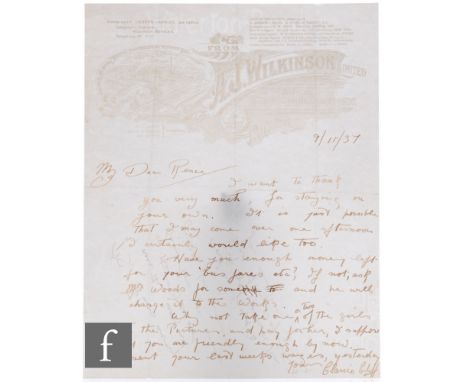 FROM
A.J. WILKINSON LIMITED
9/11/37
My Dear Renee
I want to thank
you very much for staying on
your own. It is just possible
that I may come over one afternoon
I certainly would like too.
Have you enough money left
for your 'bus fares etc? If not, ask
Mr Woods for some and he will
change it to the Works.
Why not take one or two of the girls
to the Pictures, and pay for her, I suppose
you are friendly enough by now.
sent your last weeks wages, yesterday
Clarice Cliff
f